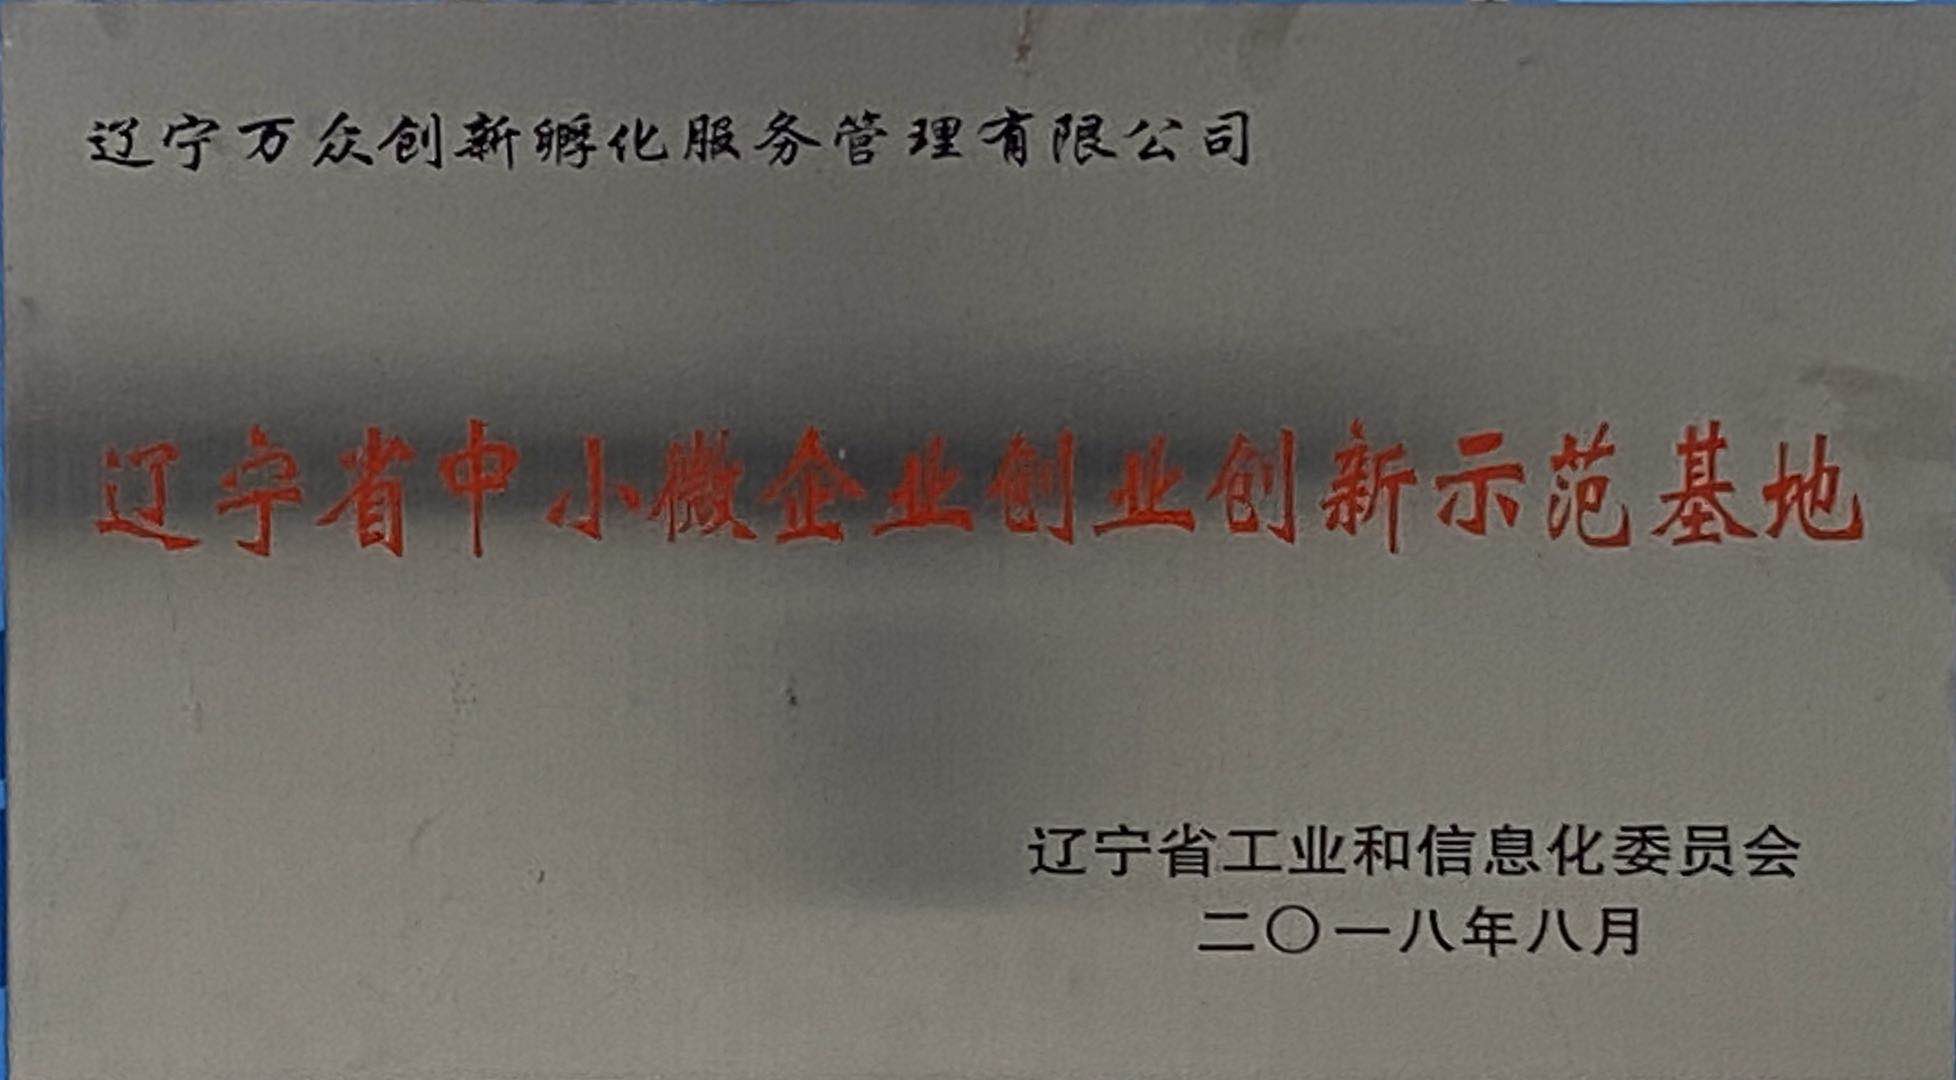 辽宁万众创新孵化服务管理有限公司
辽宁省中小微企业创业创新示范基地
辽宁省工业和信息化委员会
二〇一八年八月